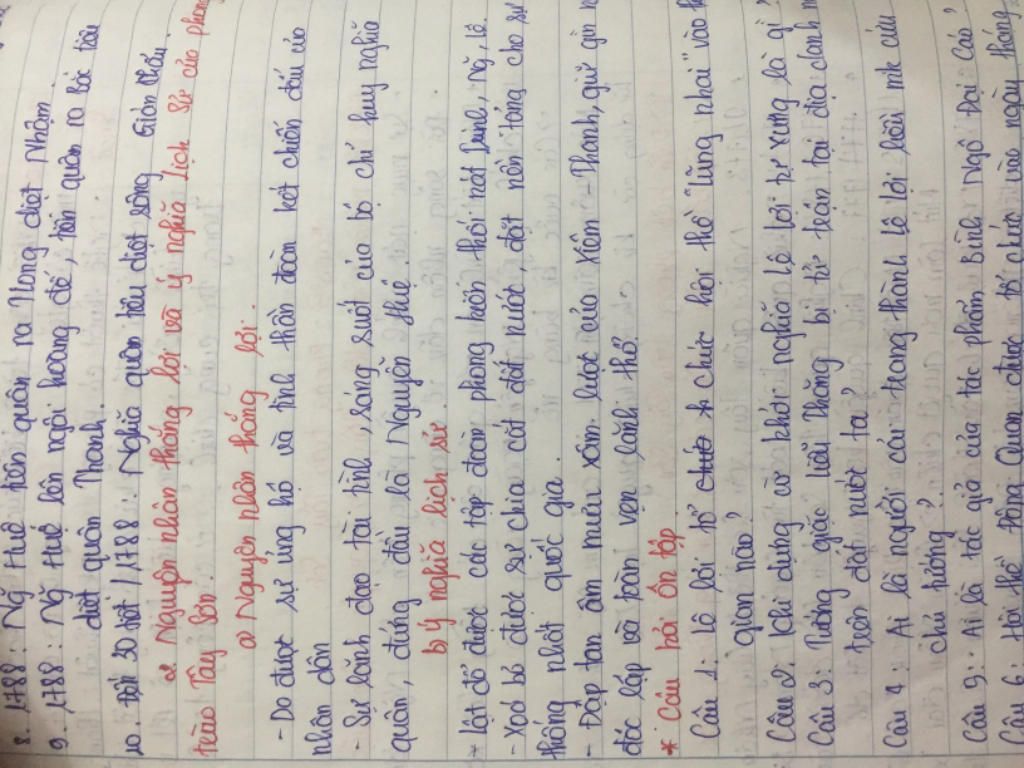 8. 1788: Ng Huệ tiến quân ra Thăng diệt Nhậm
9. 1788: Ng Huệ lên ngôi hoàng đế, tiến quân ra Bắc tiêu
diệt quân Thanh.
10. tối 30 tết / 1788: Nghĩa quân tiêu diệt sông Gián Khẩu
2. Nguyên nhân thắng lợi và ý nghĩa Lịch Sử của phong
trào Tây Sơn.
a) Nguyên nhân thắng lợi.
- Do được sự ủng hộ và tinh thần đoàn kết chiến đấu của
nhân dân
- Sự lãnh đạo tài tình, sáng suốt của bộ chỉ huy nghĩa
quân, đứng đầu là Nguyễn Huệ.
b) Ý nghĩa lịch sử.
- Lật đổ được các tập đoàn phong kiến thối nát Trịnh, Ng, Lê.
- Xoá bỏ được sự chia cắt đất nước, đặt nền tảng cho sự
thống nhất quốc gia.
- Đập tan âm mưu xâm lược của Xiêm - Thanh, giữ gìn n
độc lập và toàn vẹn lãnh thổ.
* Câu hỏi ôn tập
Câu 1: Lê Lợi tổ chức hội thề "Lũng nhai" vào
gian nào?
Câu 2: Khi dựng cờ khởi nghĩa Lê Lợi tự xưng là gì?
Câu 3: Tướng giặc Liễu Thăng bị tử trận tại địa danh n
trên đất nước ta?
Câu 4: Ai là người cải trang thành Lê Lợi liều mk cứu
chủ tướng?
Câu 5: Ai là tác giả của tác phẩm Bình Ngô Đại Cáo?
Câu 6: Hội thề Đông Quan được tổ chức vào ngày tháng